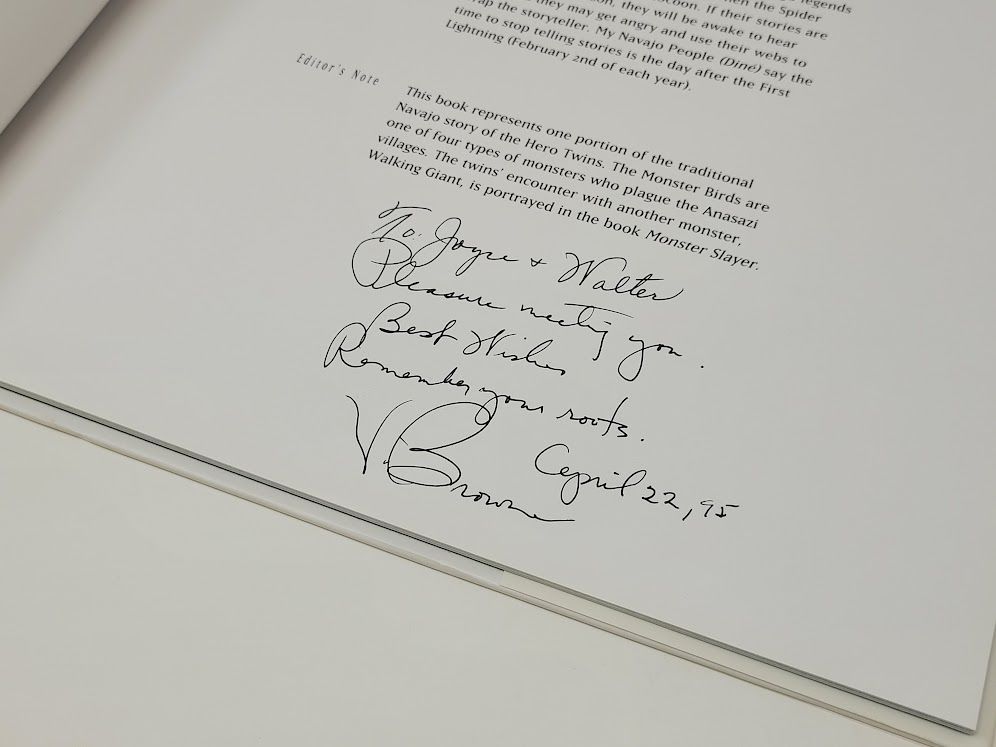 legends
the Spider
cocoon. If their stories are
, they will be awake to hear
they may get angry and use their webs to
the storyteller. My Navajo People (Diné) say the
time to stop telling stories is the day after the First
Lightning (February 2nd of each year).
Editor's Note
This book represents one portion of the traditional
Navajo story of the Hero Twins. The Monster Birds are
one of four types of monsters who plague the Anasazi
villages. The twins' encounter with another monster,
Walking Giant, is portrayed in the book Monster Slayer.
To. Joyce + Walter
Pleasure meeting you.
Best Wishes
Remember your roots.
V. Browne
April 22, 95